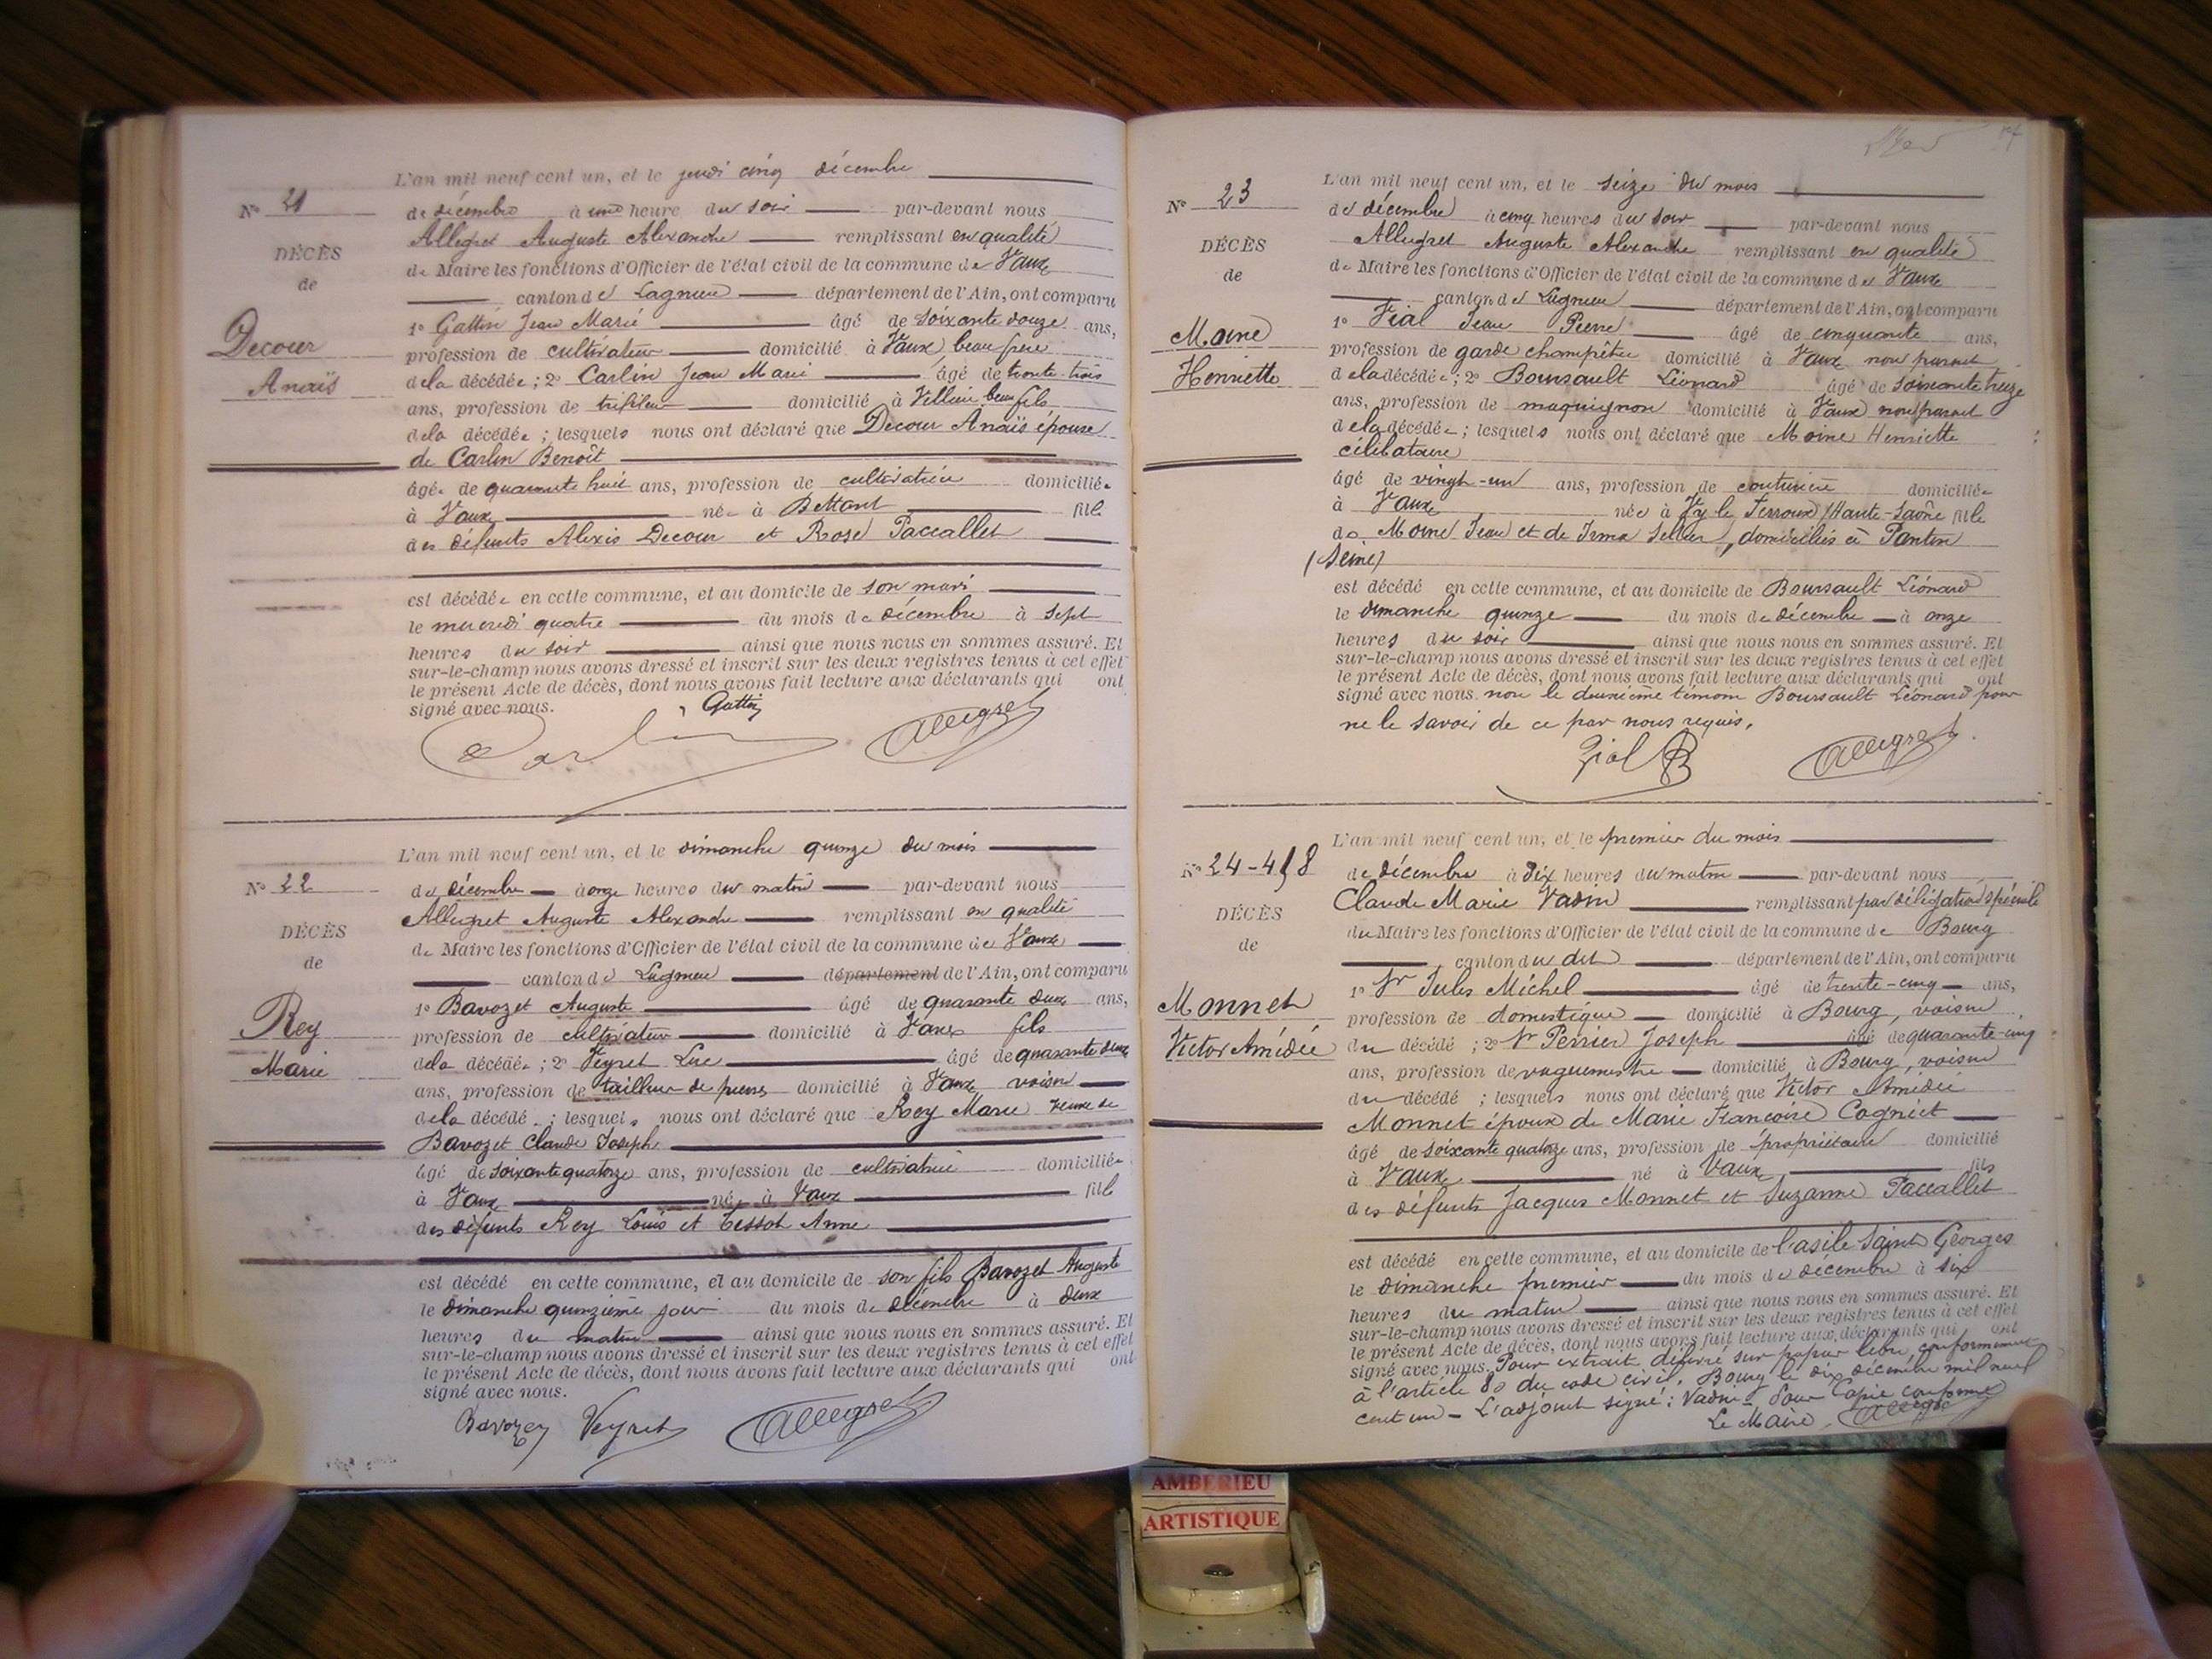 L'an mil neuf cent un, et le jeudi cinq décembre
N° 21
de décembre à une heure du soir par-devant nous
Allegret Auguste Alexandre remplissant en qualité
DÉCÈS
de Maire les fonctions d'Officier de l'état civil de la commune de Vaux
de
canton de Lagnieu département de l'Ain, ont comparu
1° Gattin Jean Marie âgé de soixante douze ans,
Decour
profession de cultivateur domicilié à Vaux beau frère
Anaïs
de la décédée ; 2° Carlin Jean Marie âgé de trente trois
ans, profession de tréfileur domicilié à beau fils
de la décédée ; lesquels nous ont déclaré que Decour Anaïs épouse
de Carlin Benoît
âgée de quarante huit ans, profession de cultivatrice domiciliée
à Vaux née à Bettant fille
des défunts Alexis Decour et Rose Paccallet
est décédée en cette commune, et au domicile de son mari
le mercredi quatre du mois de décembre à sept
heures du soir ainsi que nous nous en sommes assuré. Et
sur-le-champ nous avons dressé et inscrit sur les deux registres tenus à cet effet
le présent Acte de décès, dont nous avons fait lecture aux déclarants qui ont
signé avec nous. Gattin
Carlin Allegret
L'an mil neuf cent un, et le dimanche quinze du mois
N° 22
de décembre à onze heures du matin par-devant nous
Allegret Auguste Alexandre remplissant en qualité
DÉCÈS
de Maire les fonctions d'Officier de l'état civil de la commune de Vaux
de
canton de Lagnieu département de l'Ain, ont comparu
1° Bavozet Auguste âgé de quarante deux ans,
Rey
profession de cultivateur domicilié à Vaux fils
Marie
de la décédée ; 2° Veyret Luc âgé de quarante deux
ans, profession de tailleur de pierres domicilié à Vaux voisin
de la décédé ; lesquels nous ont déclaré que Rey Marie veuve de
Bavozet Claude Joseph
âgé de soixante quatorze ans, profession de cultivatrice domiciliée
à Vaux née à Vaux fille
des défunts Rey Louis et Tissot Anne
est décédé en cette commune, et au domicile de son fils Bavozet Auguste
le dimanche quinzième jour du mois de décembre à deux
heures du matin ainsi que nous nous en sommes assuré. Et
sur-le-champ nous avons dressé et inscrit sur les deux registres tenus à cet effet
le présent Acte de décès, dont nous avons fait lecture aux déclarants qui ont
signé avec nous.
Bavozet Veyret Allegret
L'an mil neuf cent un, et le seize du mois
N° 23
de décembre à cinq heures du soir par-devant nous
Allegret Auguste Alexandre remplissant en qualité
DÉCÈS
de Maire les fonctions d'Officier de l'état civil de la commune de Vaux
de
canton de Lagnieu département de l'Ain, ont comparu
1° Vial Jean Pierre âgé de cinquante ans,
Moine
profession de garde champêtre domicilié à Vaux non parent
Henriette
de la décédée ; 2° Boursault Léonard âgé de soixante treize
ans, profession de maquignon domicilié à Vaux non parent
de la décédée ; lesquels nous ont déclaré que Moine Henriette
célibataire
âgé de vingt-un ans, profession de couturière domiciliée
à Vaux née à Vy le Ferroux (Haute-Saône) fille
de Moine Jean et de Irma Sellier, domiciliés à Pantin
(Seine)
est décédé en cette commune, et au domicile de Boursault Léonard
le dimanche quinze du mois de décembre à onze
heures du soir ainsi que nous nous en sommes assuré. Et
sur-le-champ nous avons dressé et inscrit sur les deux registres tenus à cet effet
le présent Acte de décès, dont nous avons fait lecture aux déclarants qui ont
signé avec nous. non le deuxième témoin Boursault Léonard pour
ne le savoir de ce par nous requis.
Vial Allegret
L'an mil neuf cent un, et le premier du mois
N° 24-418
de décembre à dix heures du matin par-devant nous
Claude Marie Vadin remplissant par délégation spéciale
DÉCÈS
du Maire les fonctions d'Officier de l'état civil de la commune de Bourg
de
canton du dit département de l'Ain, ont comparu
1° Sr Jules Michel âgé de trente-cinq ans,
Monnet
profession de domestique domicilié à Bourg, voisin
Victor Amédée
du décédé ; 2° Sr Perrier Joseph âgé de quarante-cinq
ans, profession de vaguemestre domicilié à Bourg, voisin
du décédé ; lesquels nous ont déclaré que Victor Amédée
Monnet époux de Marie Françoise Cogniet
âgé de soixante quatorze ans, profession de propriétaire domicilié
à Vaux né à Vaux fils
des défunts Jacques Monnet et Suzanne Paccallet
est décédé en cette commune, et au domicile de l'asile Saint Georges
le dimanche premier du mois de décembre à six
heures du matin ainsi que nous nous en sommes assuré. Et
sur-le-champ nous avons dressé et inscrit sur les deux registres tenus à cet effet
le présent Acte de décès, dont nous avons fait lecture aux déclarants qui ont
signé avec nous. Pour extrait délivré sur papier libre conformément
à l'article 80 du code civil. Bourg le dix décembre mil neuf
cent un - L'adjoint signé : Vadin - Pour Copie conforme
Le Maire, Allegret
AMBERIEU
ARTISTIQUE